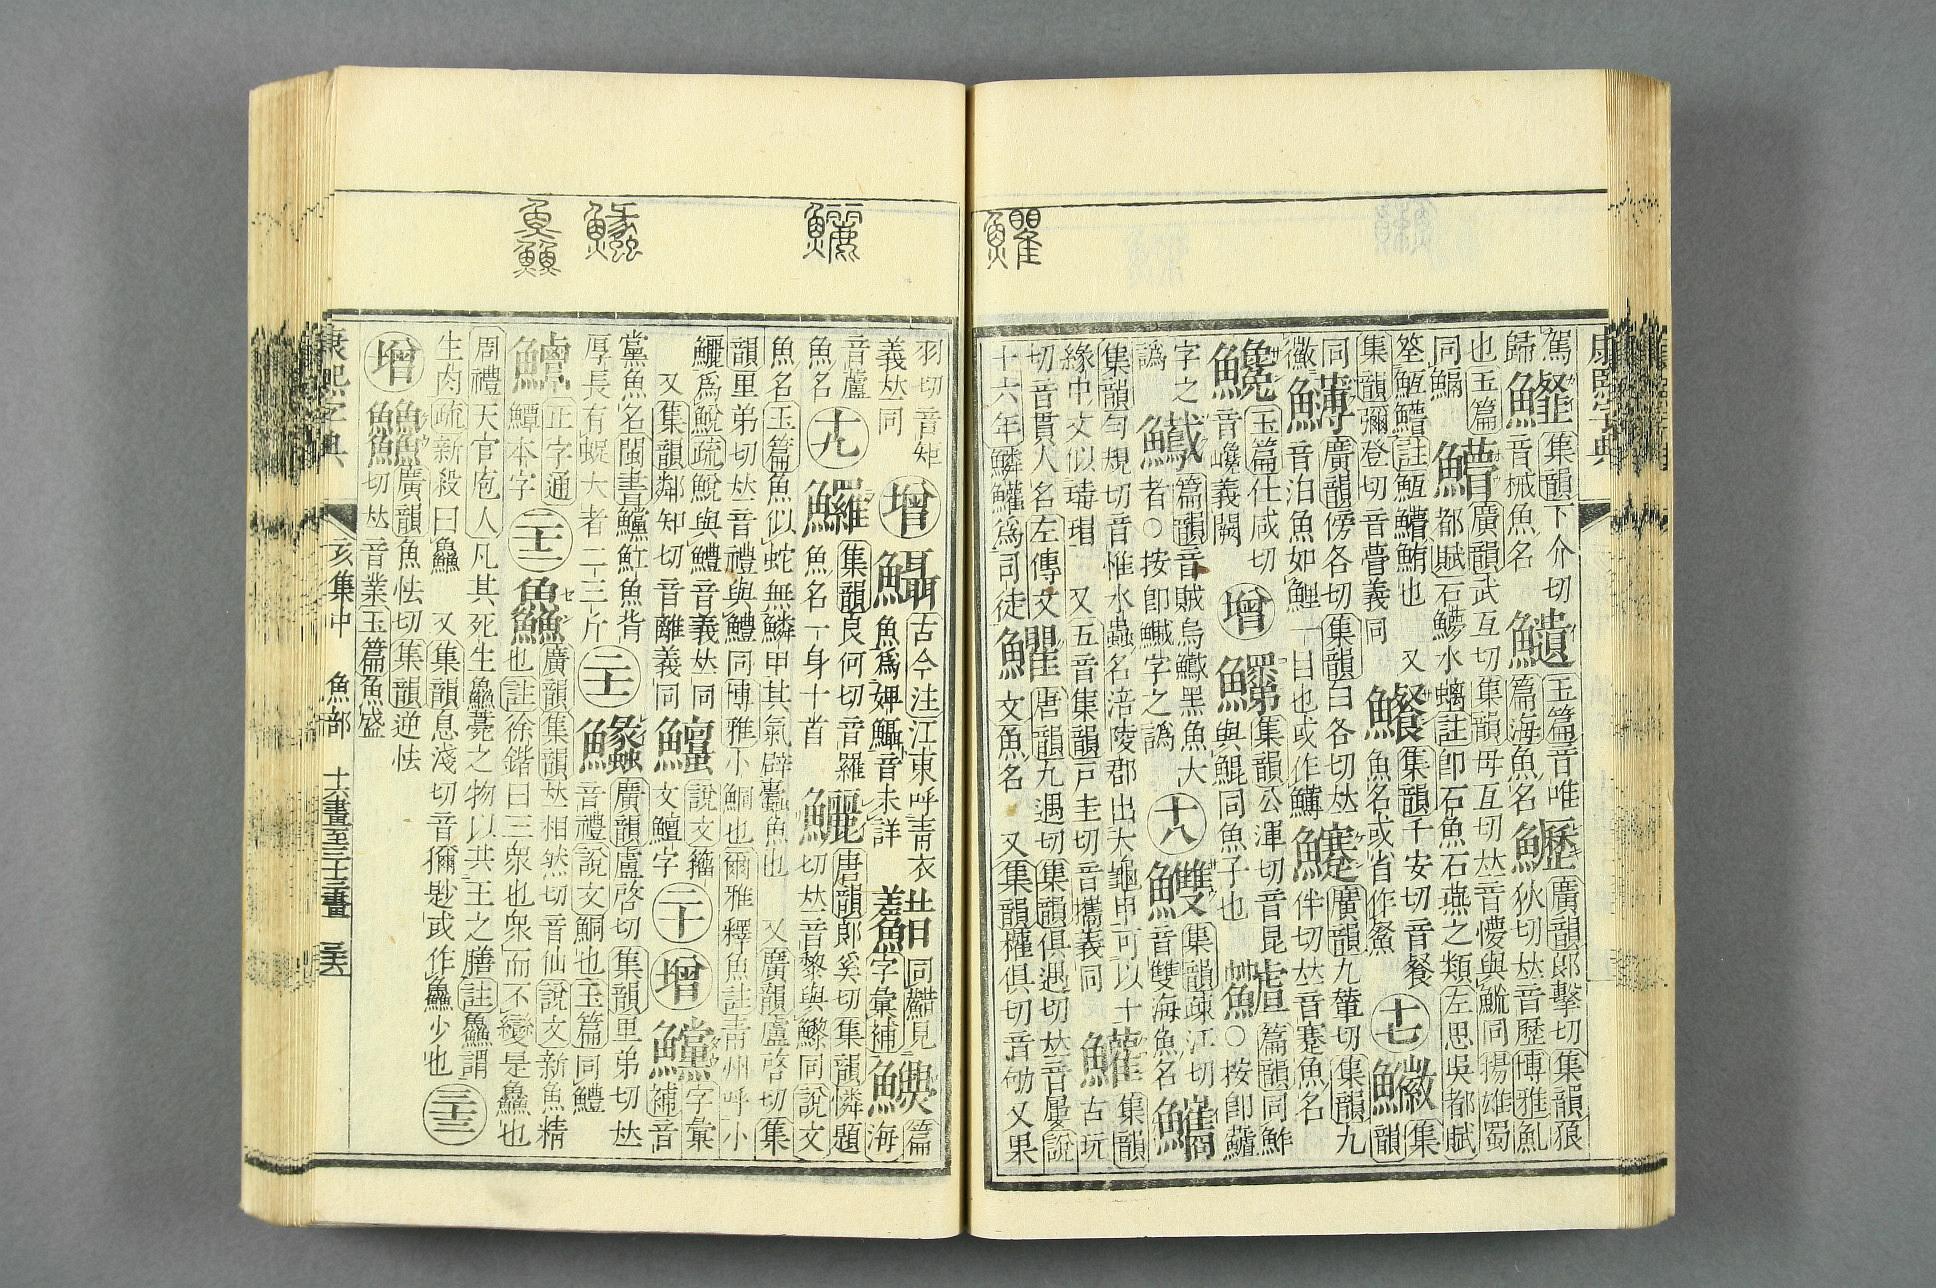 康熙字典
駕歸䲒集韻下介切音械魚名䲁玉篇音唯篇海魚名鱱廣韻郎擊切集韻狼狄切𠀤音歷博雅魠
也玉篇同鰏䲛廣韻武亙切集韻母亙切𠀤音懜與䱎同揚雄蜀都賦石鱨水螭註卽石魚石燕之類左思吳都賦
筌䱭䲛註䱭䲛鮪也 又集韻彌登切音瞢義同 集韻千安切音餐魚名或省作 十七 集韻九
同 廣韻傍各切集韻白各切𠀤音泊魚如鯉一目也或作 廣韻九輦切集韻九件切𠀤音蹇魚名
玉篇仕咸切音巉義闕 增 䲔集韻公渾切音昆與鯤同魚子也 篇韻同鮓○按卽
字之譌 篇韻音賊烏黑魚大者○按卽鱡字之譌 十八 䲚集韻疎江切音雙海魚名 集韻
集韻勻規切音惟水蟲名涪陵郡出大龜甲可以卜緣中文似瑇瑁 又五音集韻戸圭切音攜義同鱹集韻古玩
切音貫人名左傳文十六年鱗鱹爲司徒 唐韻九遇切集韻俱遇切𠀤音屨說文魚名 又集韻權俱切音劬又果
羽切音矩義𠀤同 增 古今注江東呼靑衣魚爲婢音未詳 同見字彙補 篇海
音蘆魚名 十九 集韻良何切音羅魚名一身十首鱺唐韻郎奚切集韻憐題切𠀤音黎與鯬同說文
魚名玉篇魚似蛇無鱗甲其氣辟蠹魚也 又廣韻盧啓切集韻里弟切𠀤音禮與鱧同博雅小鮦也爾雅釋魚註靑州呼小
鱺爲鮵疏鮵與鱧音義𠀤同 又集韻鄰知切音離義同 說文籀文鱣字 二十 增 字彙補音
黨魚名閩書魟魚背厚長有蜺大者二三斤 二十一 廣韻盧啓切集韻里弟切𠀤音禮說文鮦也玉篇同鱧
正字通鱏本字 二十二 鱻廣韻集韻𠀤相然切音仙說文新魚精也註徐鍇曰三衆也衆而不變是鱻也
周禮天官庖人凡其死生鱻薧之物以共王之膳註鱻謂生肉疏新殺曰鱻 又集韻息淺切音獮尟或作鱻少也 三十三
增 䲜廣韻魚怯切集韻逆怯切𠀤音業玉篇魚盛
康熙字典 亥集中 魚部 十六畫至三十三畫 三六